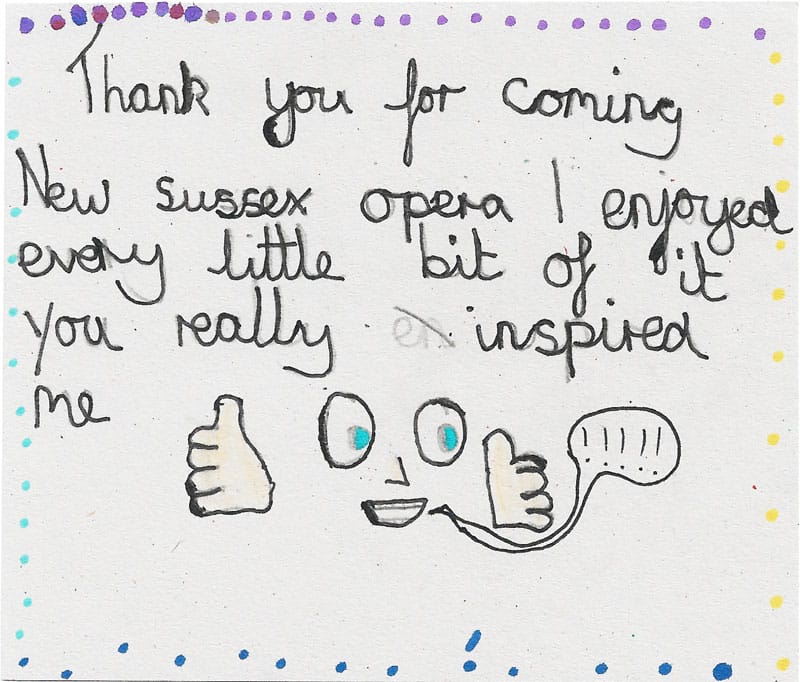 Thank you for coming
New sussex opera I enjoyed
every little bit of it
you really en inspired
me
!!!!!